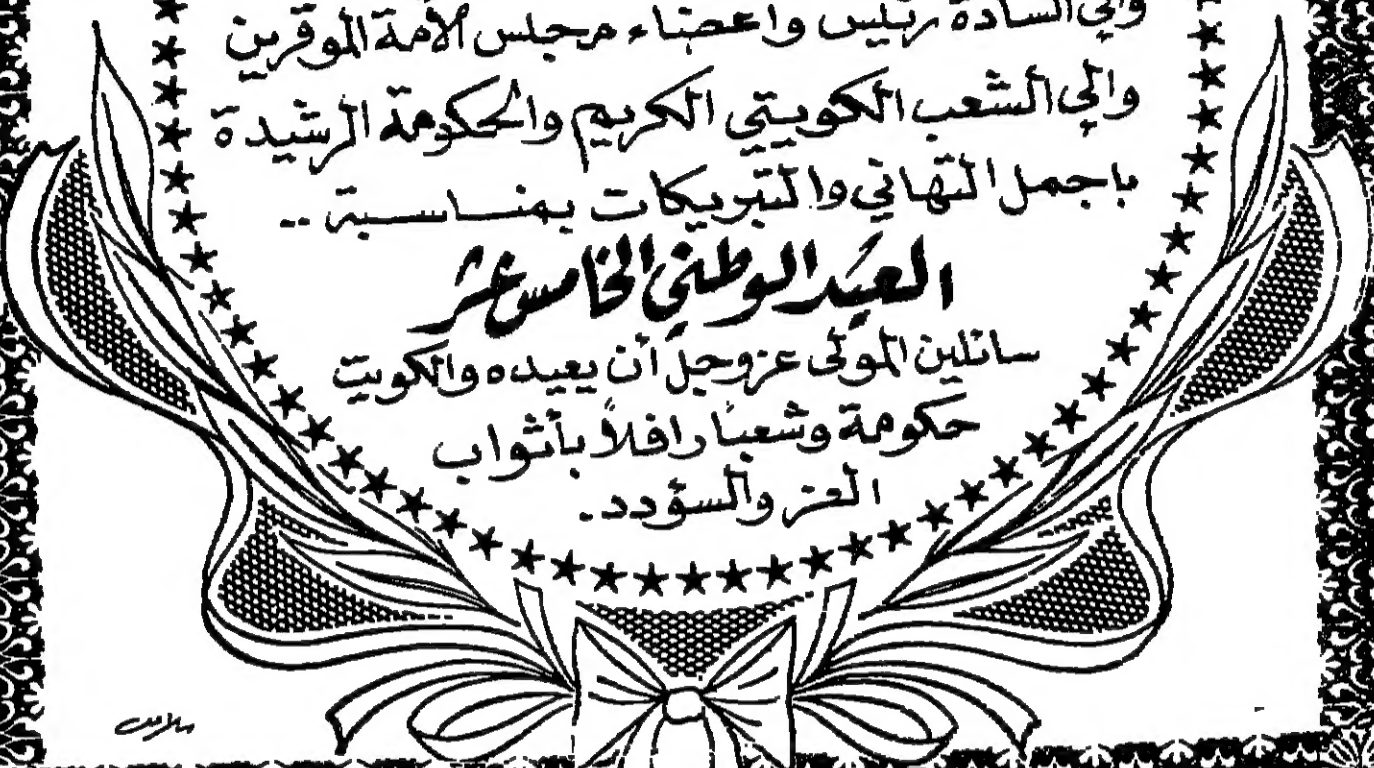 والى السادة رئيس واعضاء مجلس الأمة الموقرين
والى الشعب الكويتي الكريم والحكومة الرشيدة
باجمل التهاني والتبريكات بمناسبة ..
العيد الوطني الخامس عشر
سائلين المولى عز وجل أن يعيده والكويت
حكومة وشعباً رافلاً بأثواب
العز والسؤدد.